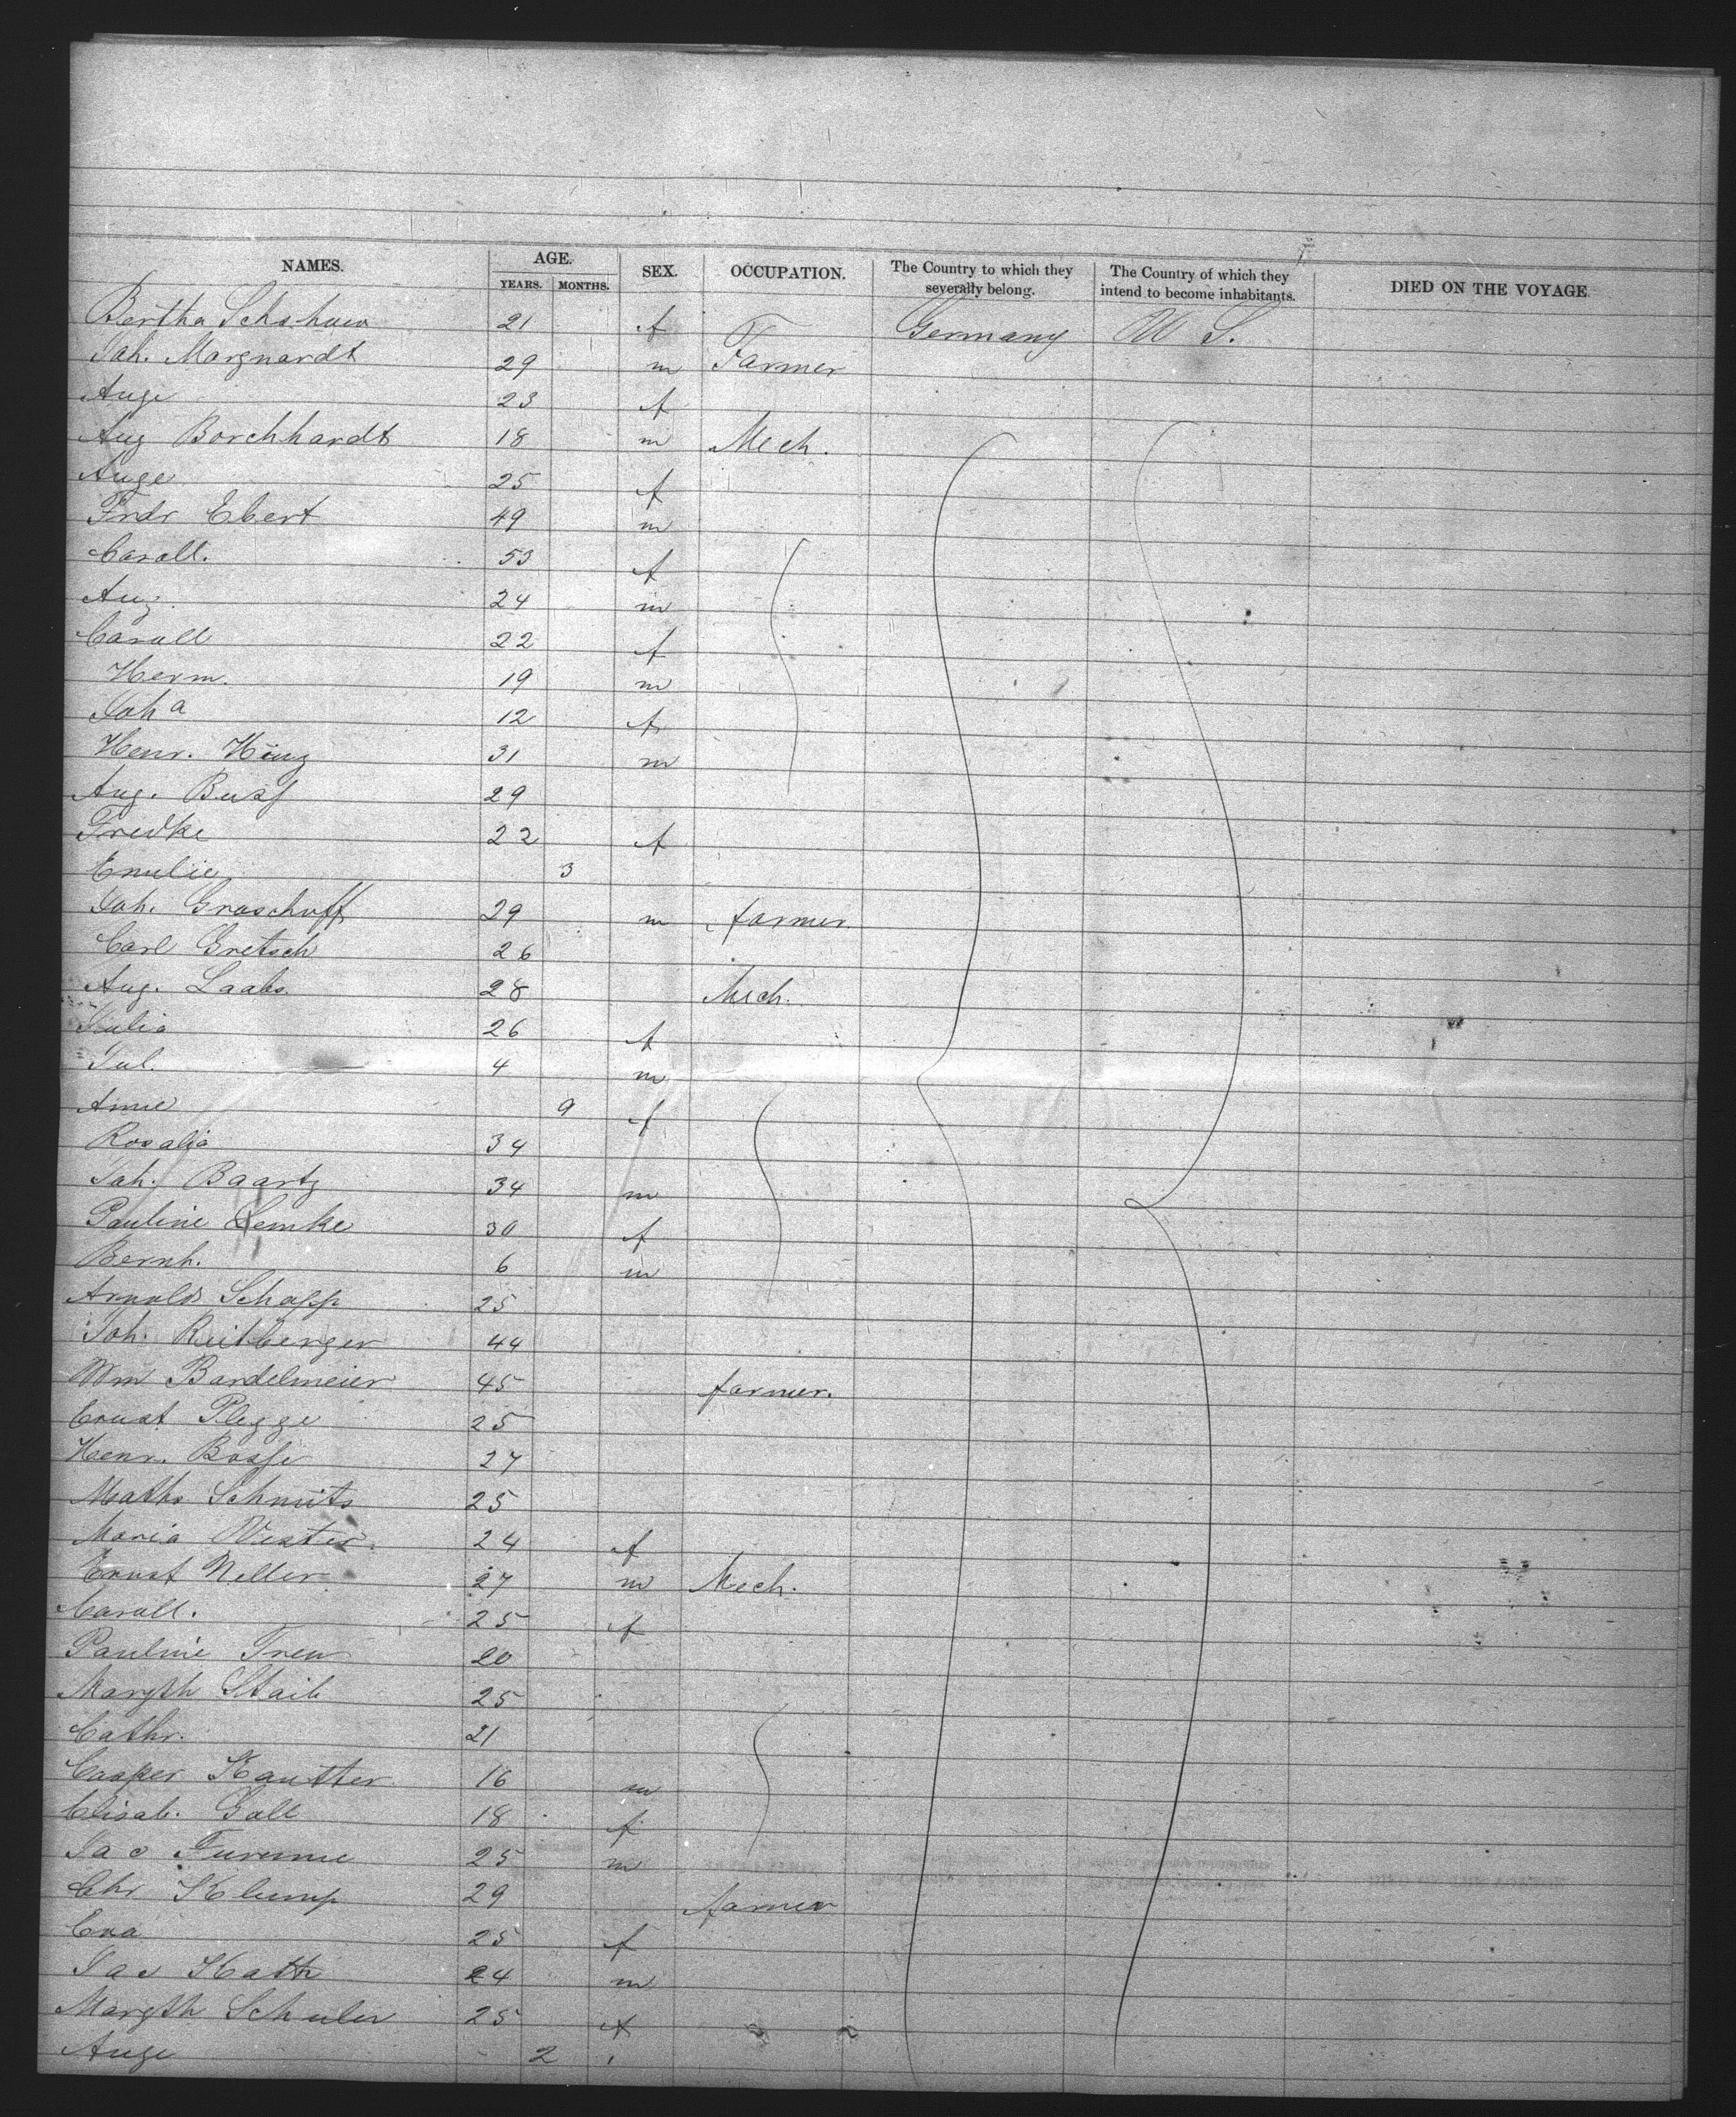 NAMES. AGE. SEX. OCCUPATION. The Country to which they severally belong. The Country of which they intend to become inhabitants. DIED ON THE VOYAGE
YEARS. MONTHS.
Bertha 21 f Germany U S.
Joh. Marquardt 29 m Farmer
Auge 23 f
Aug Borchhardt 18 m Mech.
Auge 25 f
Frdr Ebert 49 m
Caroll. 53 f
Aug. 24 m
Caroll 22 f
Herm. 19 m
Joha 12 f
Henr. 31 m
Aug. Buss 29
Fredke 22 f
Emilie 3
Joh. Graschoff 29 m farmer
Carl Gretsch 26
Aug. Laabs 28 Mech.
Julia 26 f
Jul. 4 m
9 f
Rosalia 34
Joh. Baartz 34 m
Pauline Lemke 30 f
Bernh. 6 m
Arnold Schapp 25
Joh. Reitberger 44
Wm Bardelmeier 45 farmer.
Ernst Plegge 25
Henr. Bosse 27
Maths Schmits 25
Maria 24 f
Ernst 27 m Mech.
Caroll. 25 f
Pauline 20
Margth Staib 25
Cathr. 21
Casper Kautter 16 m
Elisab. Gall 18 f
Jac 25 m
Chr Klump 29 farmer
Eva 25 f
Jac Kath 24 m
Margth Schuler 25 f
Auge 2